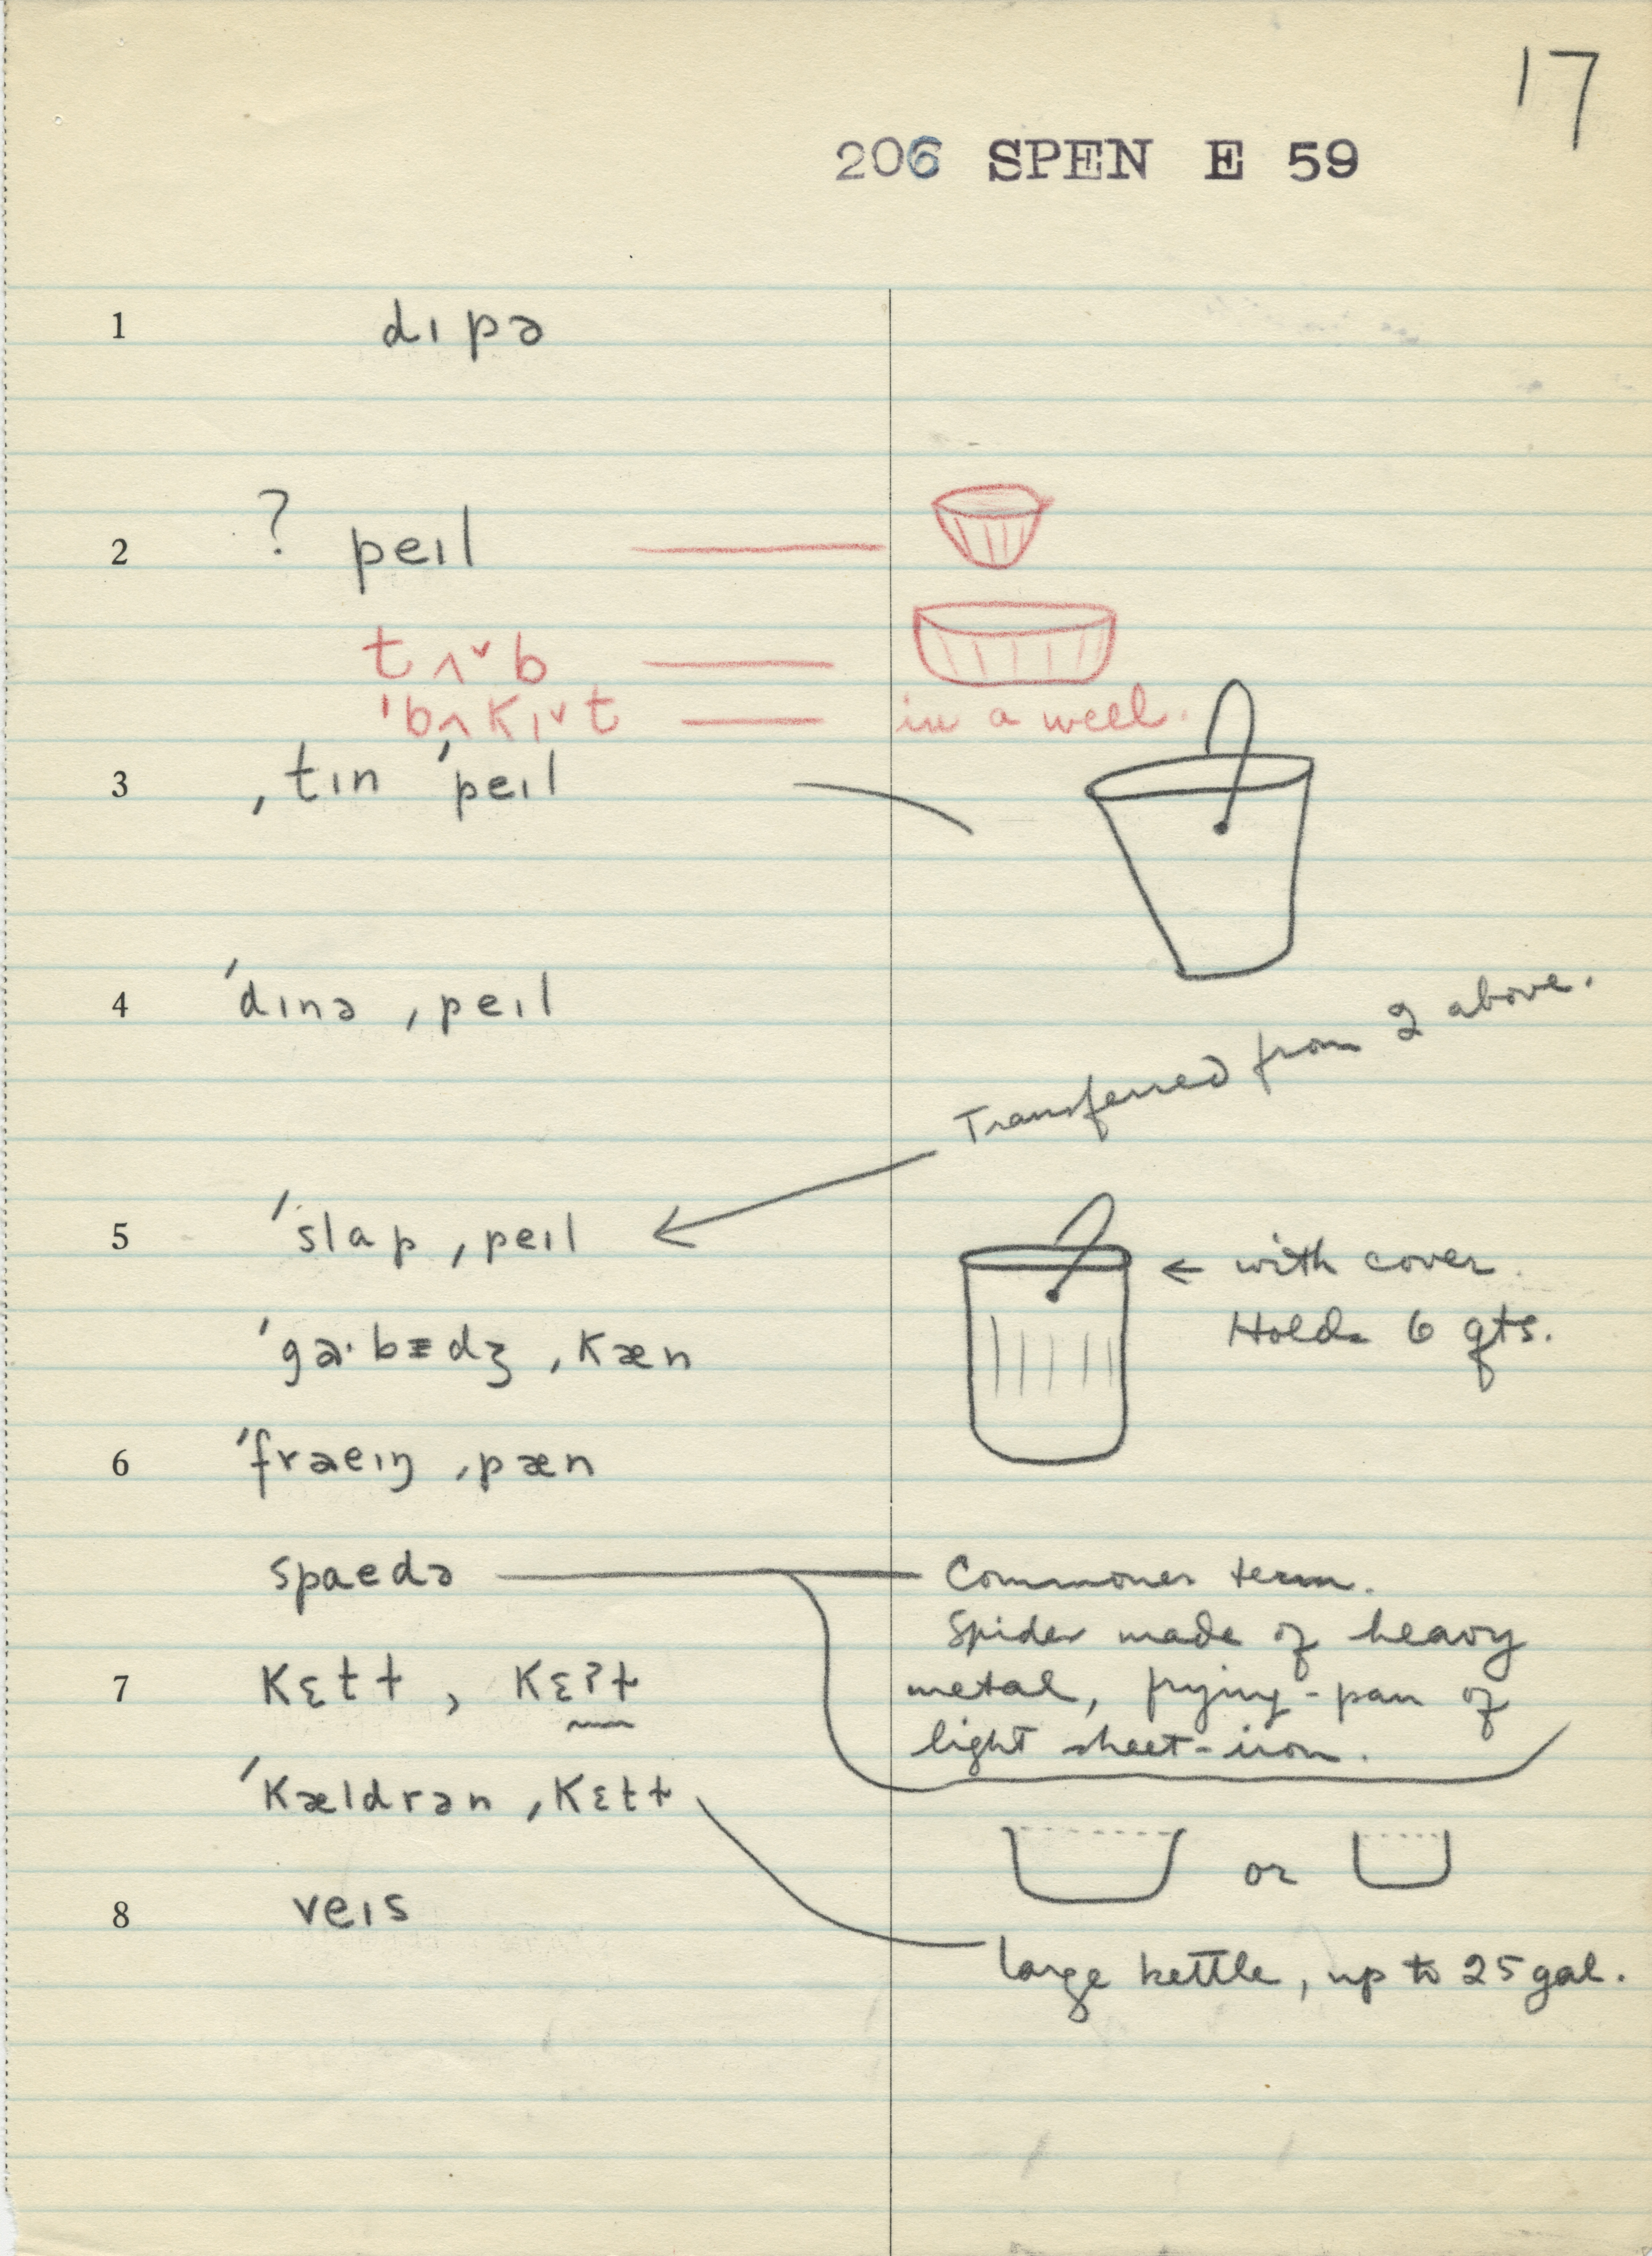 17
206 SPEN E 59
1 dɪpə
2 ? peɪl
tʌ˅b
ˈbʌkɪ˅t — in a well.
3 ˌtɪn ˈpeɪl
4 ˈdɪnə ˌpeɪl
Transferred from 2 above.
5 ˈslap ˌpeɪl
← with cover.
Holds 6 qts.
ˌkæn
6 ˌpæn
spaedə — Commoner term.
Spider made of heavy
metal, frying-pan of
light sheet-iron.
7 kɛtɫ, kɛʔɫ
ˈkældrən ˌkɛtɫ
or
8 veɪs
large kettle, up to 25 gal.